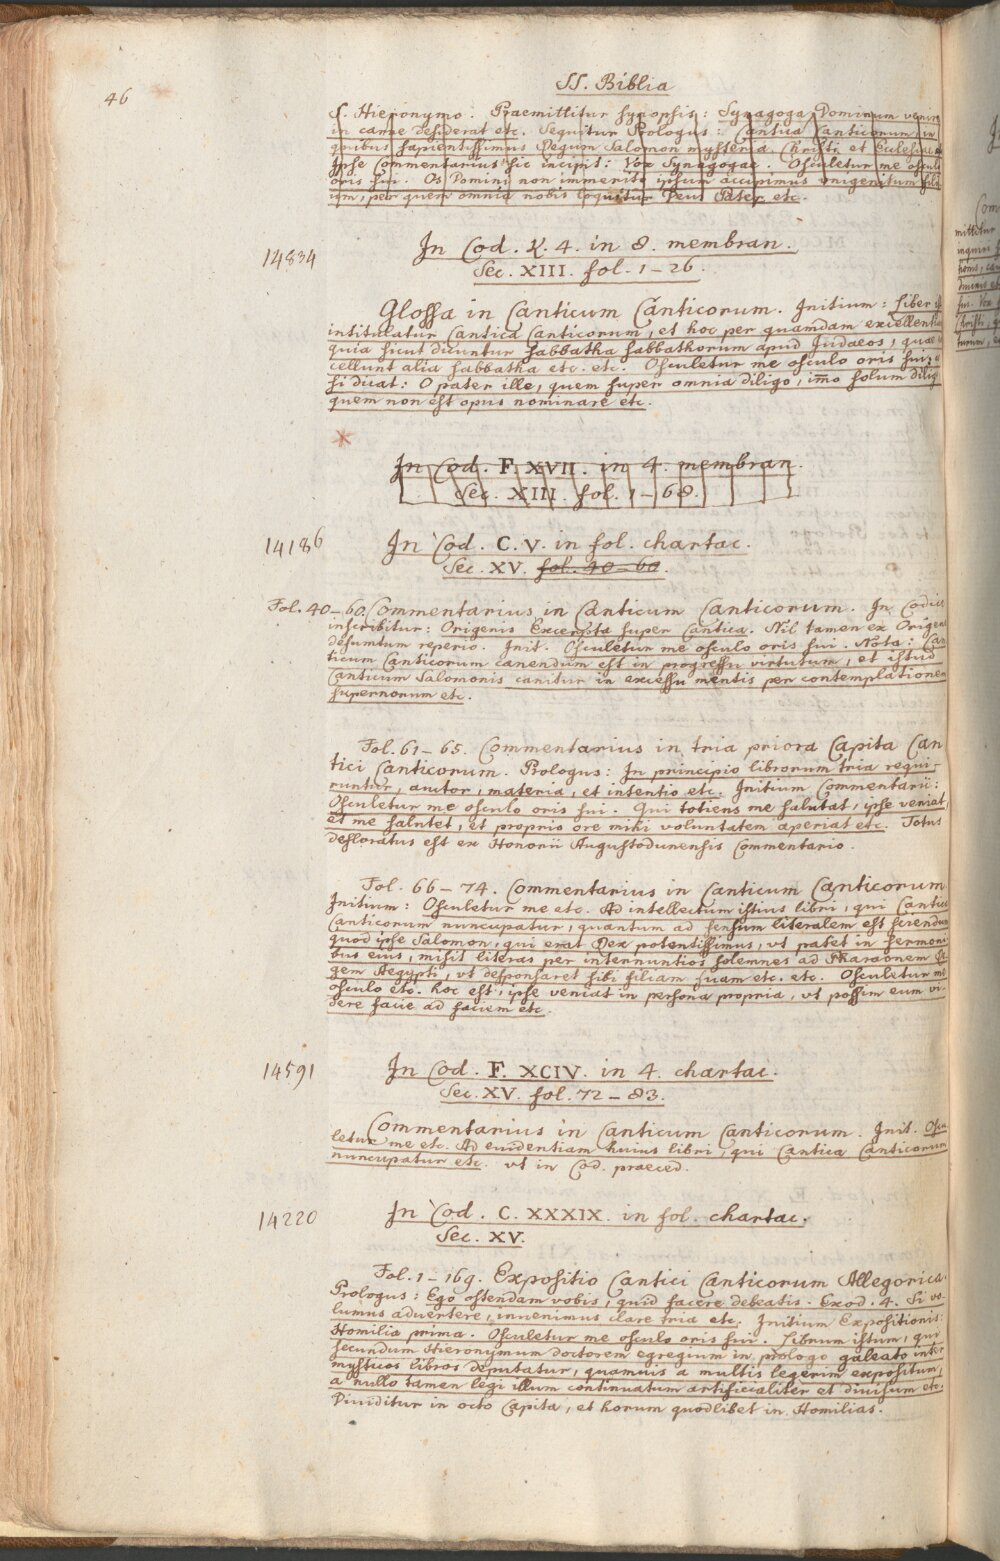 46
SS. Biblia
S. Hieronymo. Praemittitur synopsis: Synagoga Dominum venire
in carne desiderat etc. Sequitur Prologus: Cantica Canticorum, in
quibus sapientissimus Regum Salomon mysteria Christi et Ecclesiae
Ipse Commentarius sic incipit: Vox Synagogae. Osculetur me osculo
oris sui. Os Domini non immerito ipsum accipimus unigenitum fili
um, per quem omnia nobis loquitur Deus Pater etc.
14834
In Cod. X. 4. in 8. membran.
Sec. XIII. fol. 1-26.
Glossa in Canticum Canticorum. Initium: Liber
intitulatur Cantica Canticorum, et hoc per quamdam excellentia
quia sicut dicuntur sabbatha sabbathorum apud Judaeos, quae
cellunt alia sabbatha etc. etc. Osculetur me osculo oris sui,
si dicat: O pater ille, quem super omnia diligo, imo solum dilig
quem non est opus nominare etc.
In Cod. F. XVII. in 4. membran.
Sec. XIII. fol. 1-68.
14186
In Cod. C. V. in fol. chartac.
Sec. XV. fol. 40-60.
Fol. 40-60. Commentarius in Canticum Canticorum. In Codice
inscribitur: Origenis Excerpta super Cantica. Nil tamen ex Origen
desumtum reperio. Init. Osculetur me osculo oris sui. Nota: Can
ticum Canticorum canendum est in progressu virtutum, et istud
Canticum Salomonis canitur in excessu mentis per contemplationem
supernorum etc.
Fol. 61-65. Commentarius in tria priora Capita Can
tici Canticorum. Prologus: In principio librorum tria requi-
runtur, auctor, materia, et intentio etc. Initium Commentarii:
Osculetur me osculo oris sui. Qui totiens me salutat, ipse veniat,
et me salutet, et proprio ore mihi voluntatem aperiat etc. Totus
defloratus est ex Honorii Augustodunensis Commentario.
Fol. 66-74. Commentarius in Canticum Canticorum
Initium: Osculetur me etc. Ad intellectum istius libri, qui Cantica
Canticorum nuncupatur, quantum ad sensum literalem est sciendum
quod ipse Salomon, qui erat Rex potentissimus, vt patet in sermoni
bus eius, misit literas per internuntios solemnes ad Pharaonem Re
gem Aegypti, vt desponsaret sibi filiam suam etc. etc. Osculetur me
osculo etc. hoc est, ipse veniat in persona propria, vt possim eum vi-
dere facie ad faciem etc.
14591
In Cod. F. XCIV. in 4. chartac.
Sec. XV. fol. 72-83.
Commentarius in Canticum Canticorum. Init. Oscu
letur me etc. Ad euidentiam huius libri, qui Cantica Canticorum
nuncupatur etc. vt in Cod. praeced.
14220
In Cod. C. XXXIX. in fol. chartac.
Sec. XV.
Fol. 1-169. Expositio Cantici Canticorum Allegorica.
Prologus: Ego ostendam vobis, quid facere debeatis. Exod. 4. Si vo
lumus aduertere, inuenimus clare tria etc. Initium Expositionis:
Homilia prima. Osculetur me osculo oris sui. Librum istum, qui
secundum Hieronymum doctorem egregium in prologo galeato inter
mysticos libros deputatur, quamuis a multis legerim expositum,
a nullo tamen legi illum continuatum artificialiter et diuisum etc.
Diuiditur in octo Capita, et horum quodlibet in Homilias.